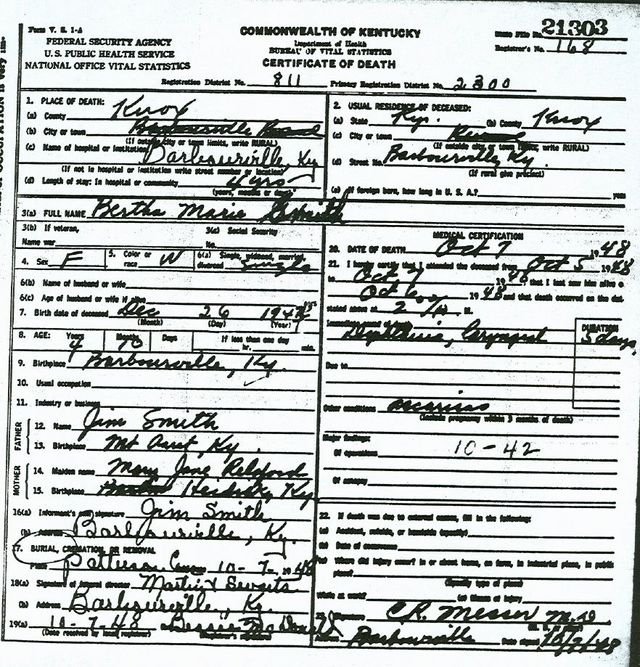 Form V. S. 1-A
FEDERAL SECURITY AGENCY
U. S. PUBLIC HEALTH SERVICE
NATIONAL OFFICE VITAL STATISTICS
COMMONWEALTH OF KENTUCKY
Department of Health
BUREAU OF VITAL STATISTICS
CERTIFICATE OF DEATH
State File No. 21303
Registrar's No. 168
Registration District No. 811 Primary Registration District No. 2300
1. PLACE OF DEATH:
(a) County Knox
(b) City or town
(If outside city or town limits, write RURAL)
(c) Name of hospital or institution Barbourville, Ky
(If not in hospital or institution write street number or location)
(d) Length of stay: In hospital or community 4 yrs
(years, months or days)
2. USUAL RESIDENCE OF DECEASED:
(a) State Ky. (b) County Knox
(c) City or town
(If outside city or town limits, write RURAL)
(d) Street No. Barbourville, Ky.
(If rural give precinct)
(e) If foreign born, how long in U. S. A.? years
3(a) FULL NAME Bertha Marie Smith
3(b) If veteran,
Name war
3(c) Social Security
No.
4. Sex F
5. Color or race W
6(a) Single, widowed, married, divorced Single
6(b) Name of husband or wife
6(c) Age of husband or wife if alive yrs
7. Birth date of deceased Dec 26
(Month) (Day) (Year)
8. AGE: Years Months Days If less than one day
4 10 hr. min.
9. Birthplace Barbourville, Ky.
10. Usual occupation
11. Industry or business
FATHER
12. Name Jim Smith
13. Birthplace Ky.
MOTHER
14. Maiden name Mary Jane
15. Birthplace Ky
16(a) Informant's own signature Jim Smith
(b) Address Barbourville, Ky.
17. BURIAL, CREMATION, OR REMOVAL
Place 10-7- 1948
18(a) Signature of funeral director
(b) Address Barbourville, Ky.
19(a) 10-7-48
(Date received by local registrar) (Registrar's signature)
MEDICAL CERTIFICATION
20. DATE OF DEATH Oct 7 1948
21. I hereby certify that I attended the deceased from Oct 5 1948
to Oct 7 1948 that I last saw him alive on
Oct 6 1948 and that death occurred on the date
stated above at 2 M.
Immediate cause Diphtheria, Laryngeal
DURATION
5 days
Due to
Other conditions ascariasis
(Include pregnancy within 3 months of death)
Major findings:
Of operations 10-42
Of autopsy
22. If death was due to external causes, fill in the following:
(a) Accident, suicide, or homicide (specify)
(b) Date of occurrence
(c) Where did injury occur? in or about home, on farm, in industrial place, in public
place?
(Specify type of place)
While at work? (e) Means of injury
23. Signature C R. Messer M.D
Address Barbourville Date signed 10/7/48